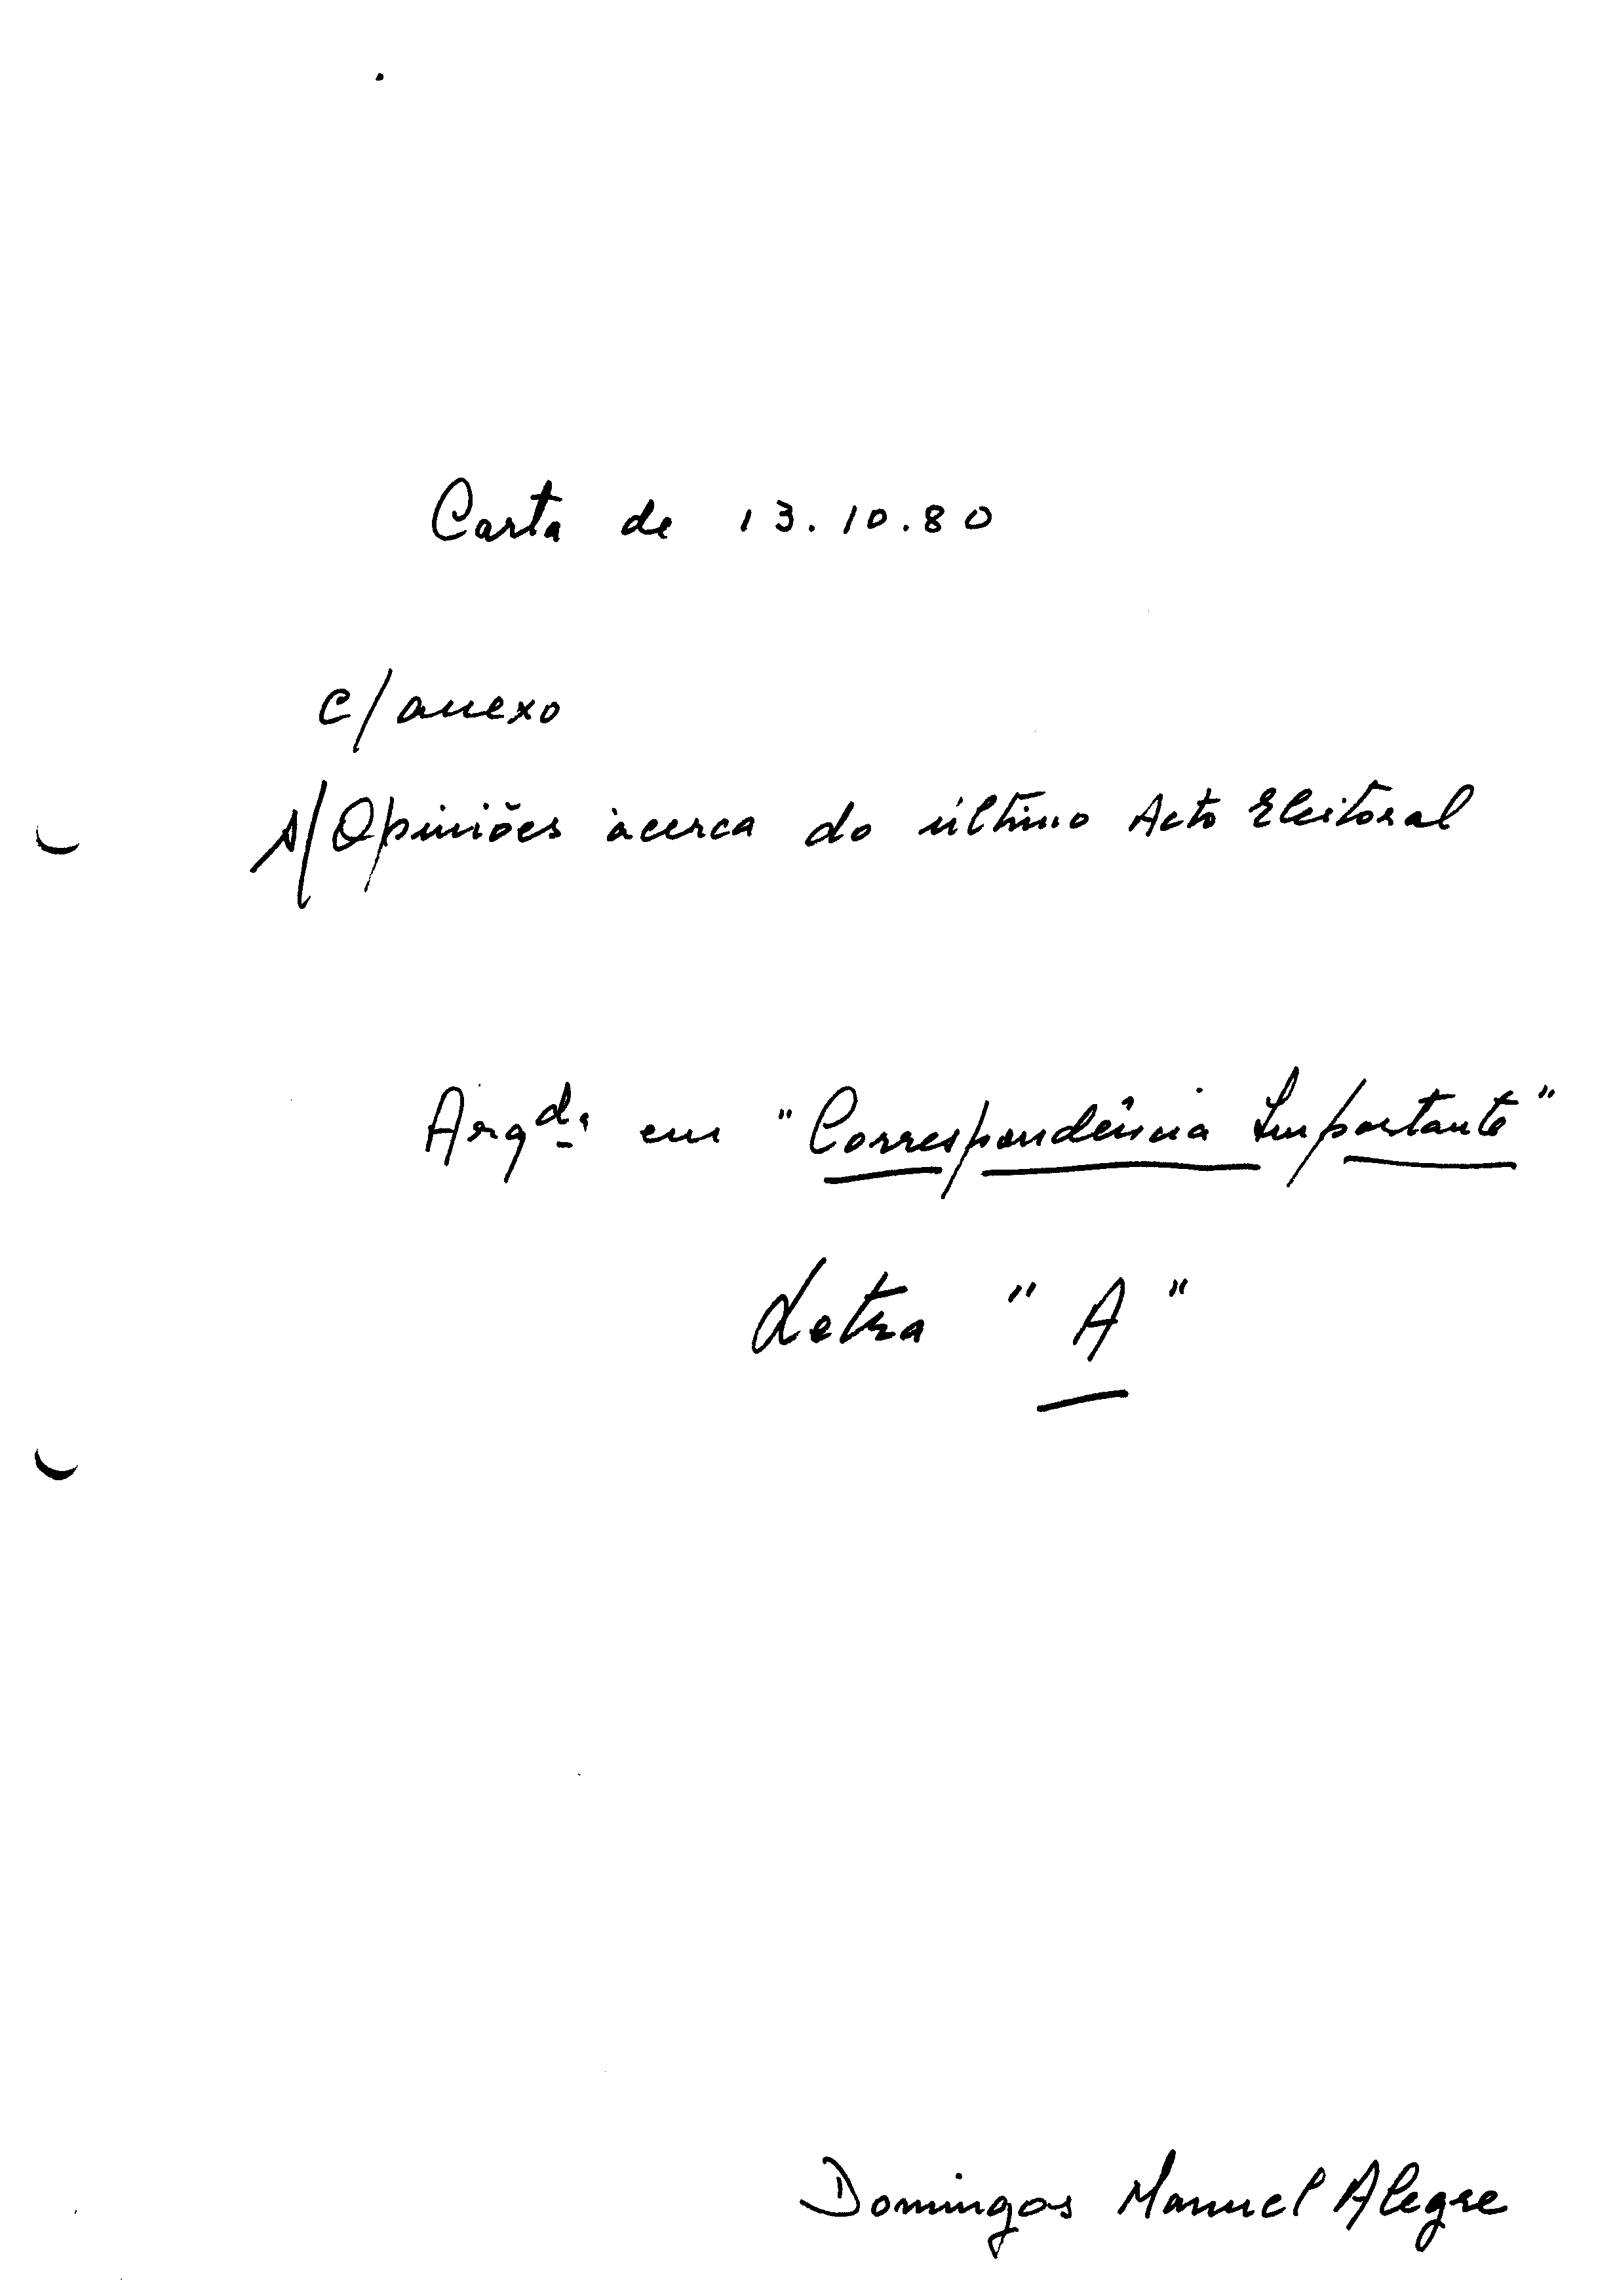 Carta de 13.10.80
c/ anexo
s/ Opiniões àcerca do último Acto Eleitoral
Arqda. em "Correspondência Importante"
Letra "A"
Domingos Manuel Alegre